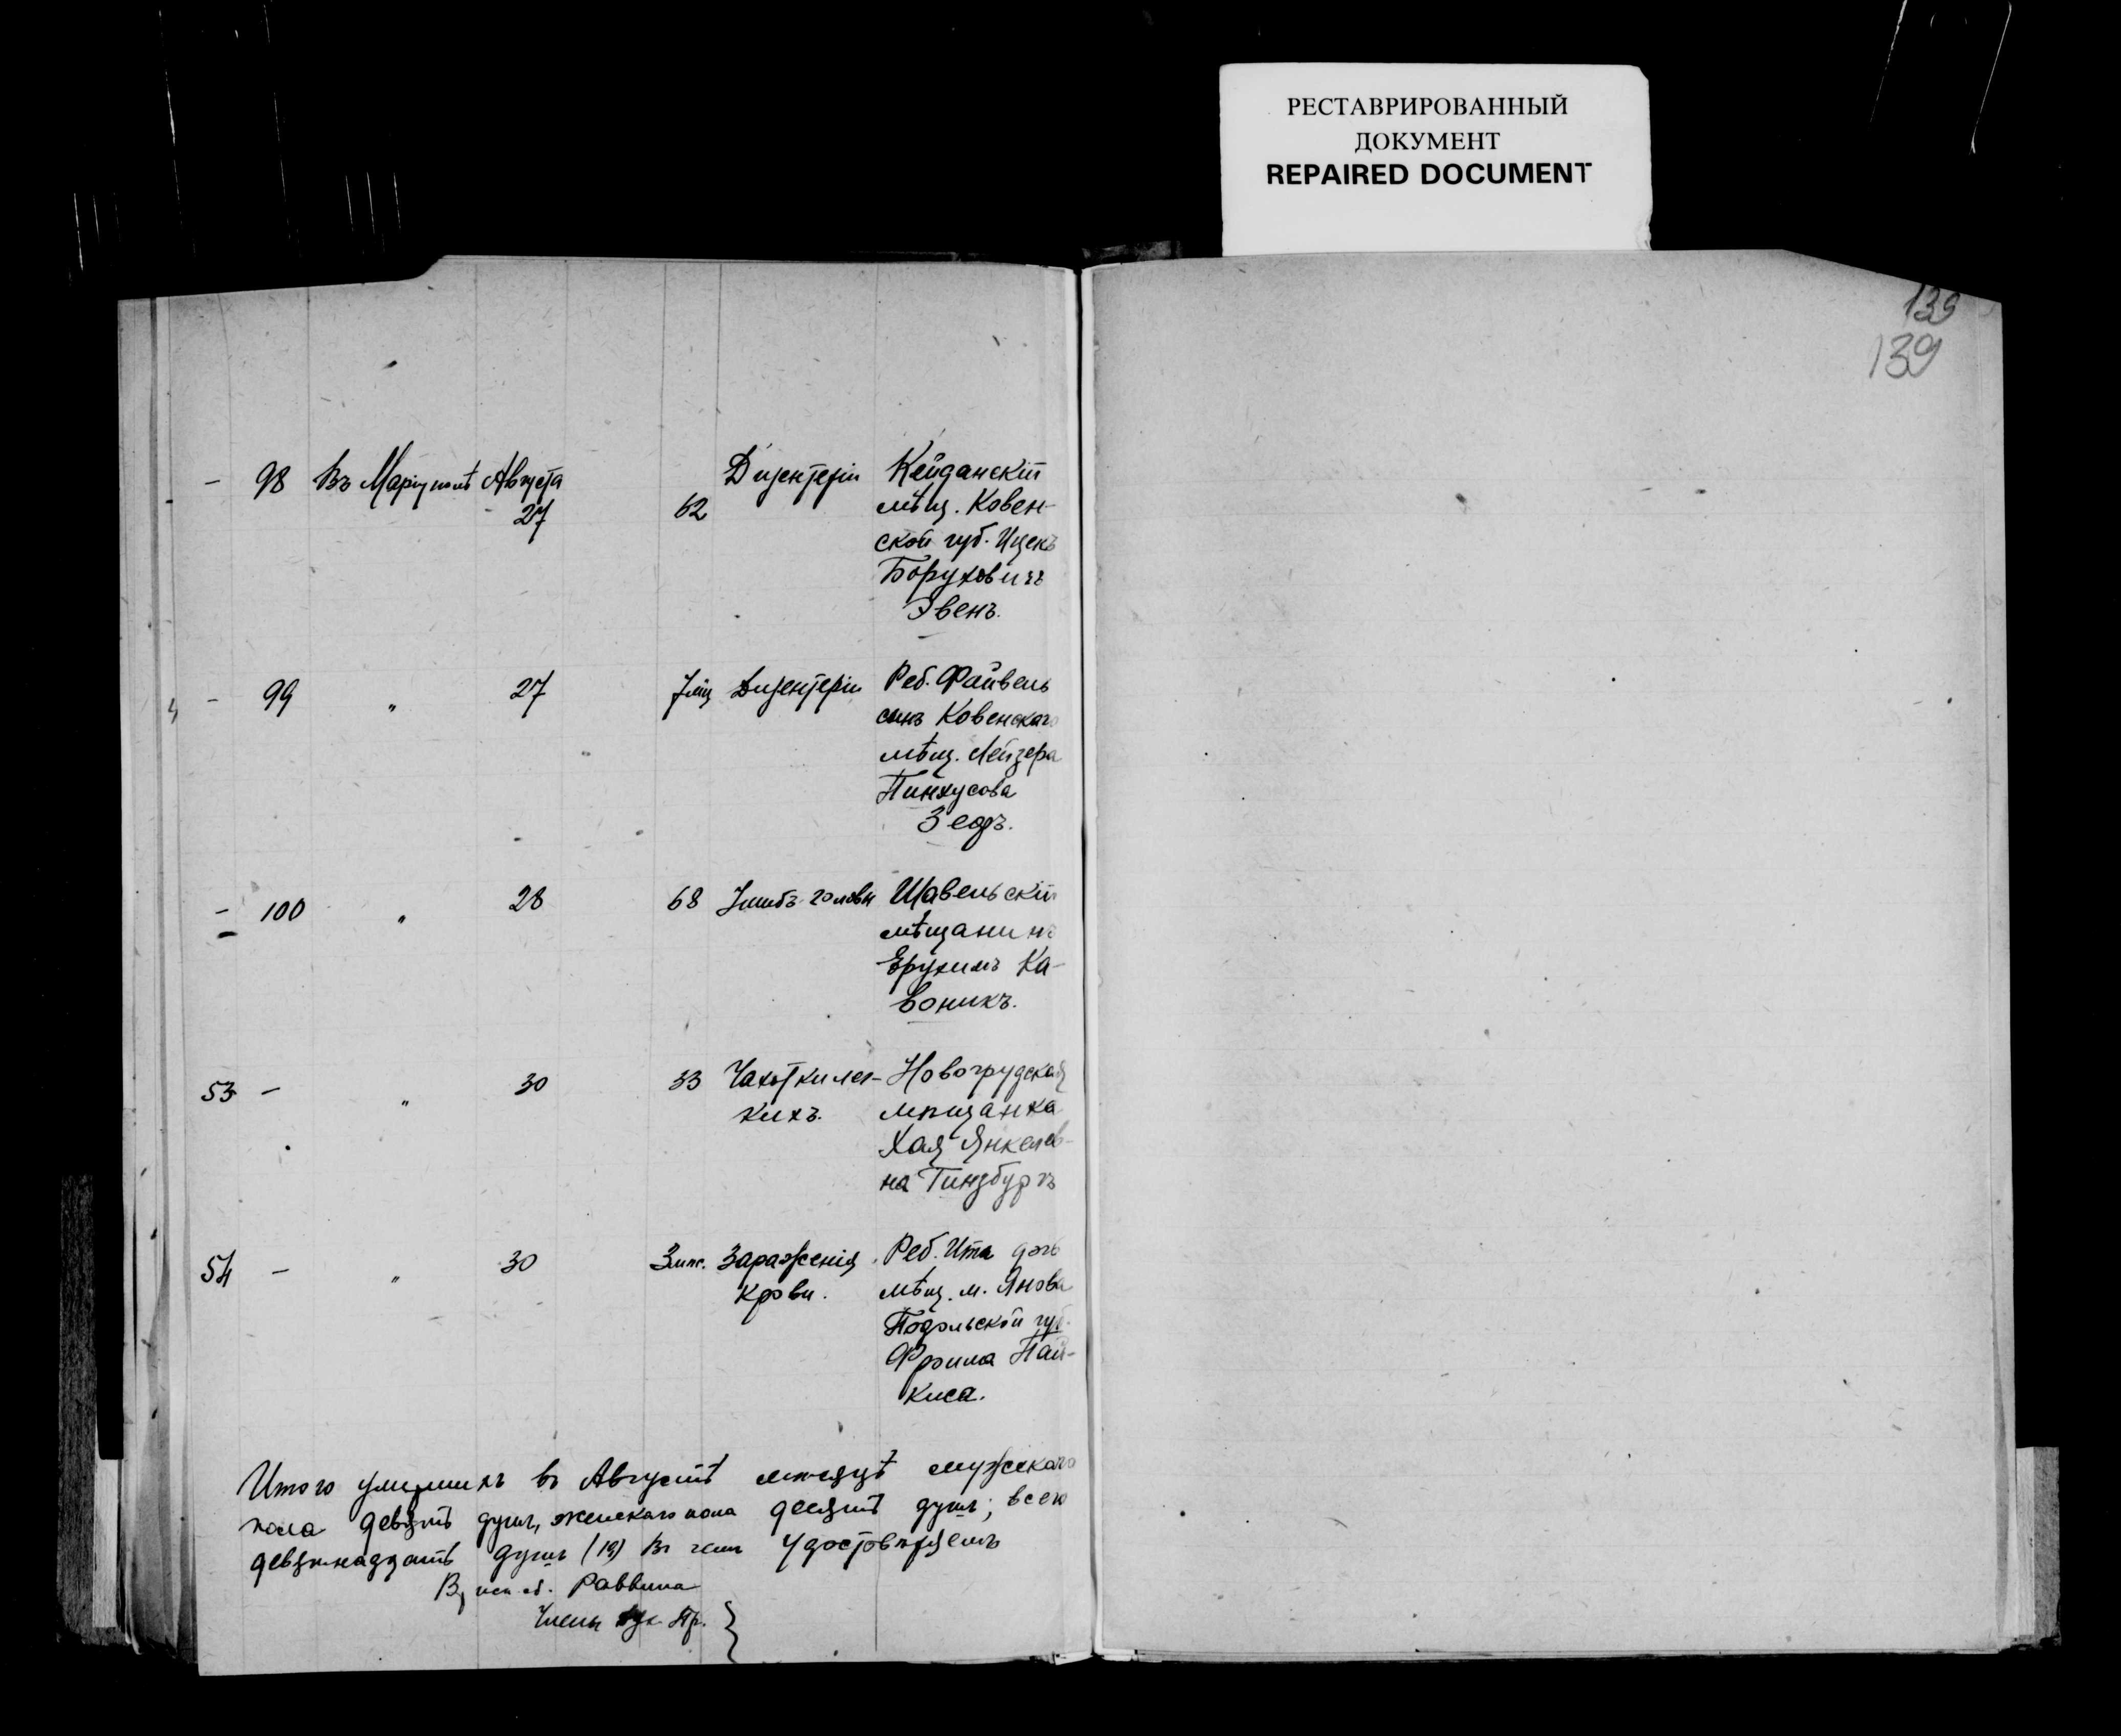 РЕСТАВРИРОВАННЫЙ
ДОКУМЕНТ
REPAIRED DOCUMENT
139
139
- 98 Въ Маріуполѣ Августа 27 62 Дизентеріи Кейданскій
мѣщ. Ковен-
ской губ. Ицекъ
Боруховичъ
Эвенъ.
- 99 " 27 7 мѣц Дизентеріи Реб. Файвель
сынъ Ковенскаго
мѣщ. Лейзера
Пинхусова
Зедъ.
- 100 " 28 68 Ушибъ головы Шавельскій
мѣщанинъ
Ерухимъ Ка-
воникъ.
53 - " 30 33 Чахотки лег- Новогрудская
кихъ. мѣщанка
Хая Янкелев-
на Гинзбургъ
54 - " 30 3 мѣс. Зараженія Реб. Ита дочь
крови. мѣщ. м. Янова
Подольской губ.
Фроима Пай-
киса.
Итого умершихъ въ Августѣ мѣсяцѣ мужскаго
пола девять душъ, женскаго пола десять душъ; всего
девятнадцать душъ (19) Въ чемъ удостовѣряемъ
исп. об. Раввина
Члены Пр.